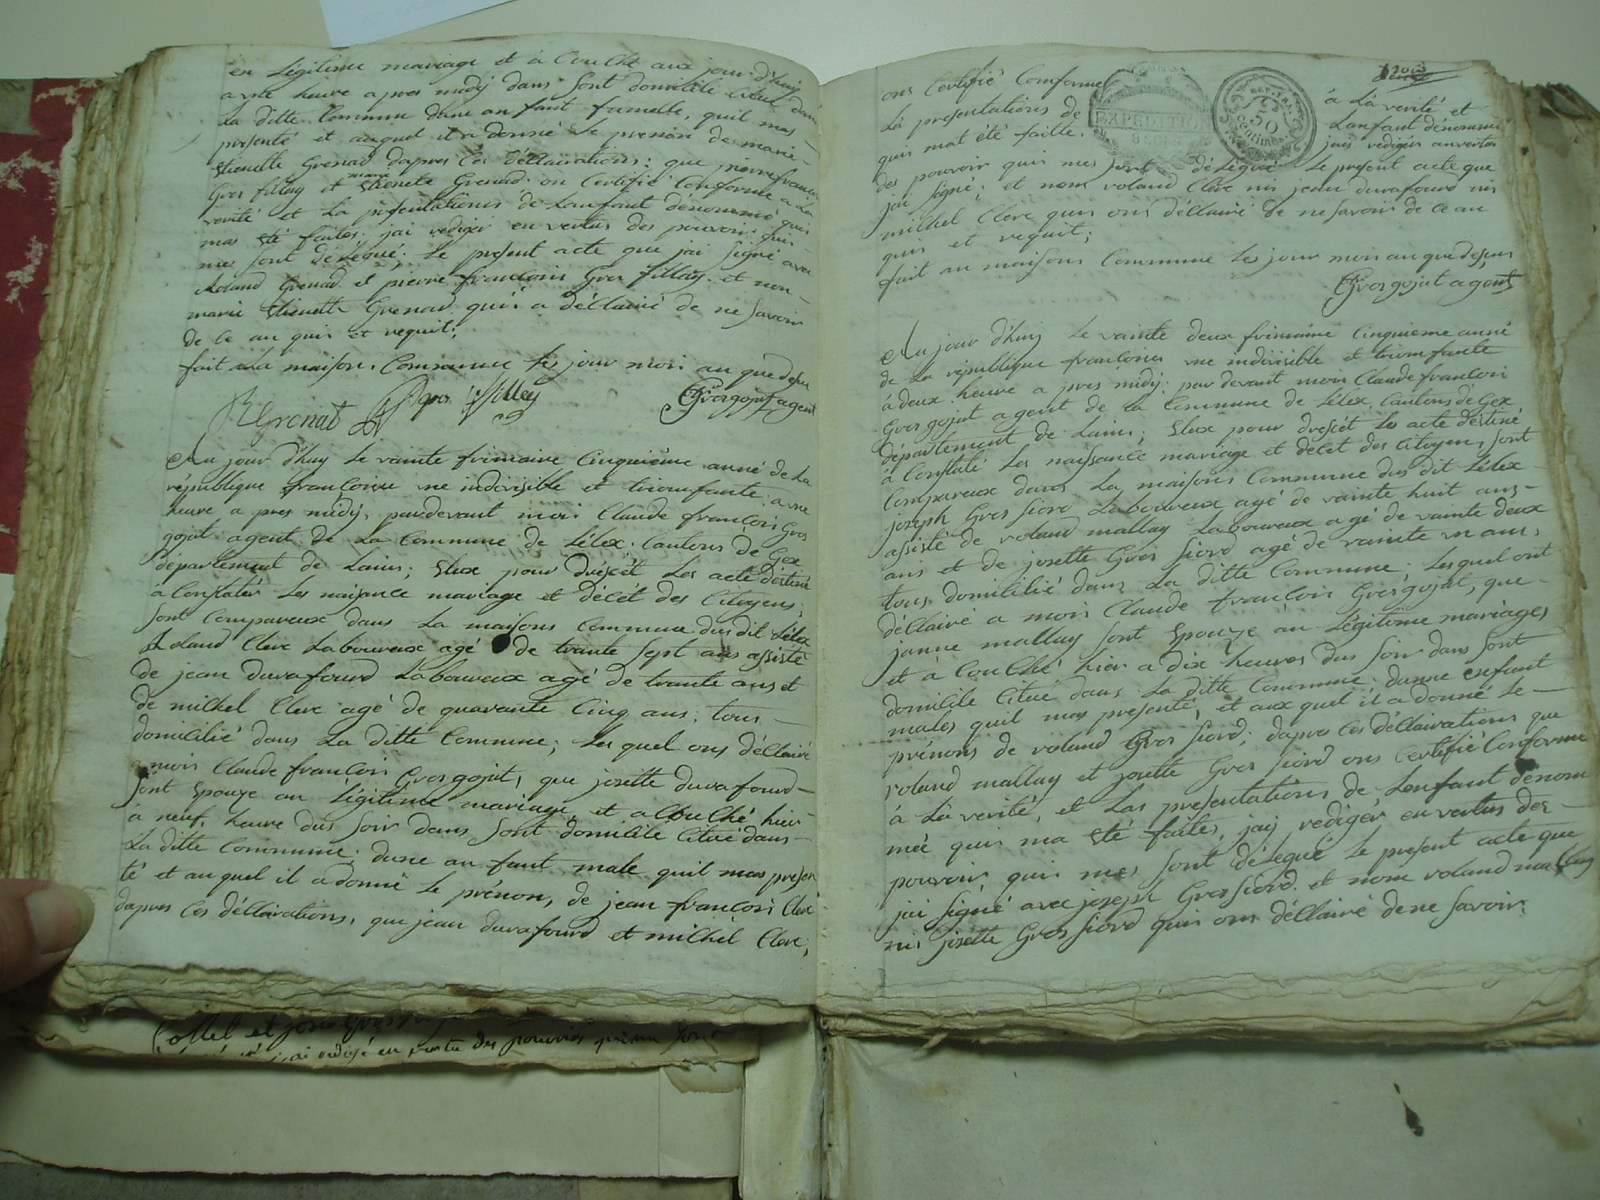 en Légitime mariage et à Couché aux jour d'huy
a une heure apres midy dans sont domicile citué dans
La ditte Commune dune an faint fumelle, quil mas
présenté et auquel il à donné le prenom de marie
Etienette Grenad dapres Ces déclairations; que pierre francois
Gros fillay et marie Etienete Grenad on Certifié Conforme a La
verité et La présentations de Lanfant dénommé quis
mas été faites. jai rediger en vertus des pouvoir quis
mes sont délégué; Le present acte que jai signé avec
Roland Grenad et pierre francois Gros fillay. et non
marie Etienette Grenad quis a déllairé de ne savoir
de ce au quis et requit;
fait a la maison Commune les jour mois an que desu
RGrenat gros fillay Grosgojat agent
Au jour d'huy le vainte frimaire Cinquième anné de La
république francoise une indivisible et triomfante a une
heure a pres midy, pardevant moi Claude francois Gros
gojat agent de La Commune de Lélex Cantons de Gex
département de Lains; Elux pour dressét Les acte déstiné
à Constatér les naisance mariage et décét des Citoyens,
sont Compareux dans La maisons Commune dus dit Lélex
Roland Clerc Laboureux agé de trante sept ans assisté
de jean duvafourd Laboureux agé de trante ans et
de milhel Clerc agé de quarante Cinq ans, tous
domicilié dans La ditte Commune; Les quel ons déllairé
a moin Claude francois Grosgojat, que josette duvafourd
sont Epouze an Légitime mariage et a Couché hier
a neuf heure dus soir dans sont domicile Citué dans
La ditte Commune; dune an faint male quil mas presen
té et au quel il a donné Le prénom, de jean francois Clerc
dapres Ces déllairations, que jean duvafourd et milhel Clerc,
120
ons Certifié Comforme à La verité et
La presentations de Lanfant dénommé
quis mat été faille. jais rediger anvertus
EXPEDITI
50
centimes
des pouvoir quis mes sont délégué Le present acte que
jai signé; et nom roland Clerc nis jean duvafourd nis
milhel Clerc quis ons déllairé de ne savoir de ce au
quis et requit;
fait an maisons Commune les jour mois an que desus
Grosgojat agent
Au jour d'huy le vainte deux frimaire Cinquieme anné
de La république francoise une indivisible et triomfante
à deux heure a pres midy; par devant mois Claude francois
Gros gojat agent de La Commune de Lélex Cantons de Gex
département de Lains; Elux pour dressét les acte déstiné
à Constaté Les naissance mariage et decét des Citoyens, sont
Compareux dans La maisons Commune dus dit Lélex
joseph Gros fiord Laboureux agé de vainte huit ans
assisté de roland mallay Laboureux agé de vainte deux
ans et de josette Gros fiord agé de vainte un ans,
tous domicilié dans La ditte Commune; Lesquel ont
déllairé a mois Claude francois Grosgojat, que
janne mallay sont Epouze an Légitime mariages
et à Couché hier a dix heures dus soir dans sont
domicile Citué dans La ditte Commune. dunne enfant
males quil mas presenté, et aux quel il a donné Le
prénoms de roland Gros fiord; dapres Ces déllairations que
roland mallay et josette Gros fiord ons Certifié Conforme
à La verité, et Las presentations de Lenfant dénom
méé quis ma été faites, jaij rediger en vertus des
pouvoir quis mes sont délégué Le present acte que
jai signé avec joseph Gros fiord. et nom roland mallay
nis josette Gros fiord quis ons déllairé de ne savoir;
ai redigé en vertu des pouvoirs